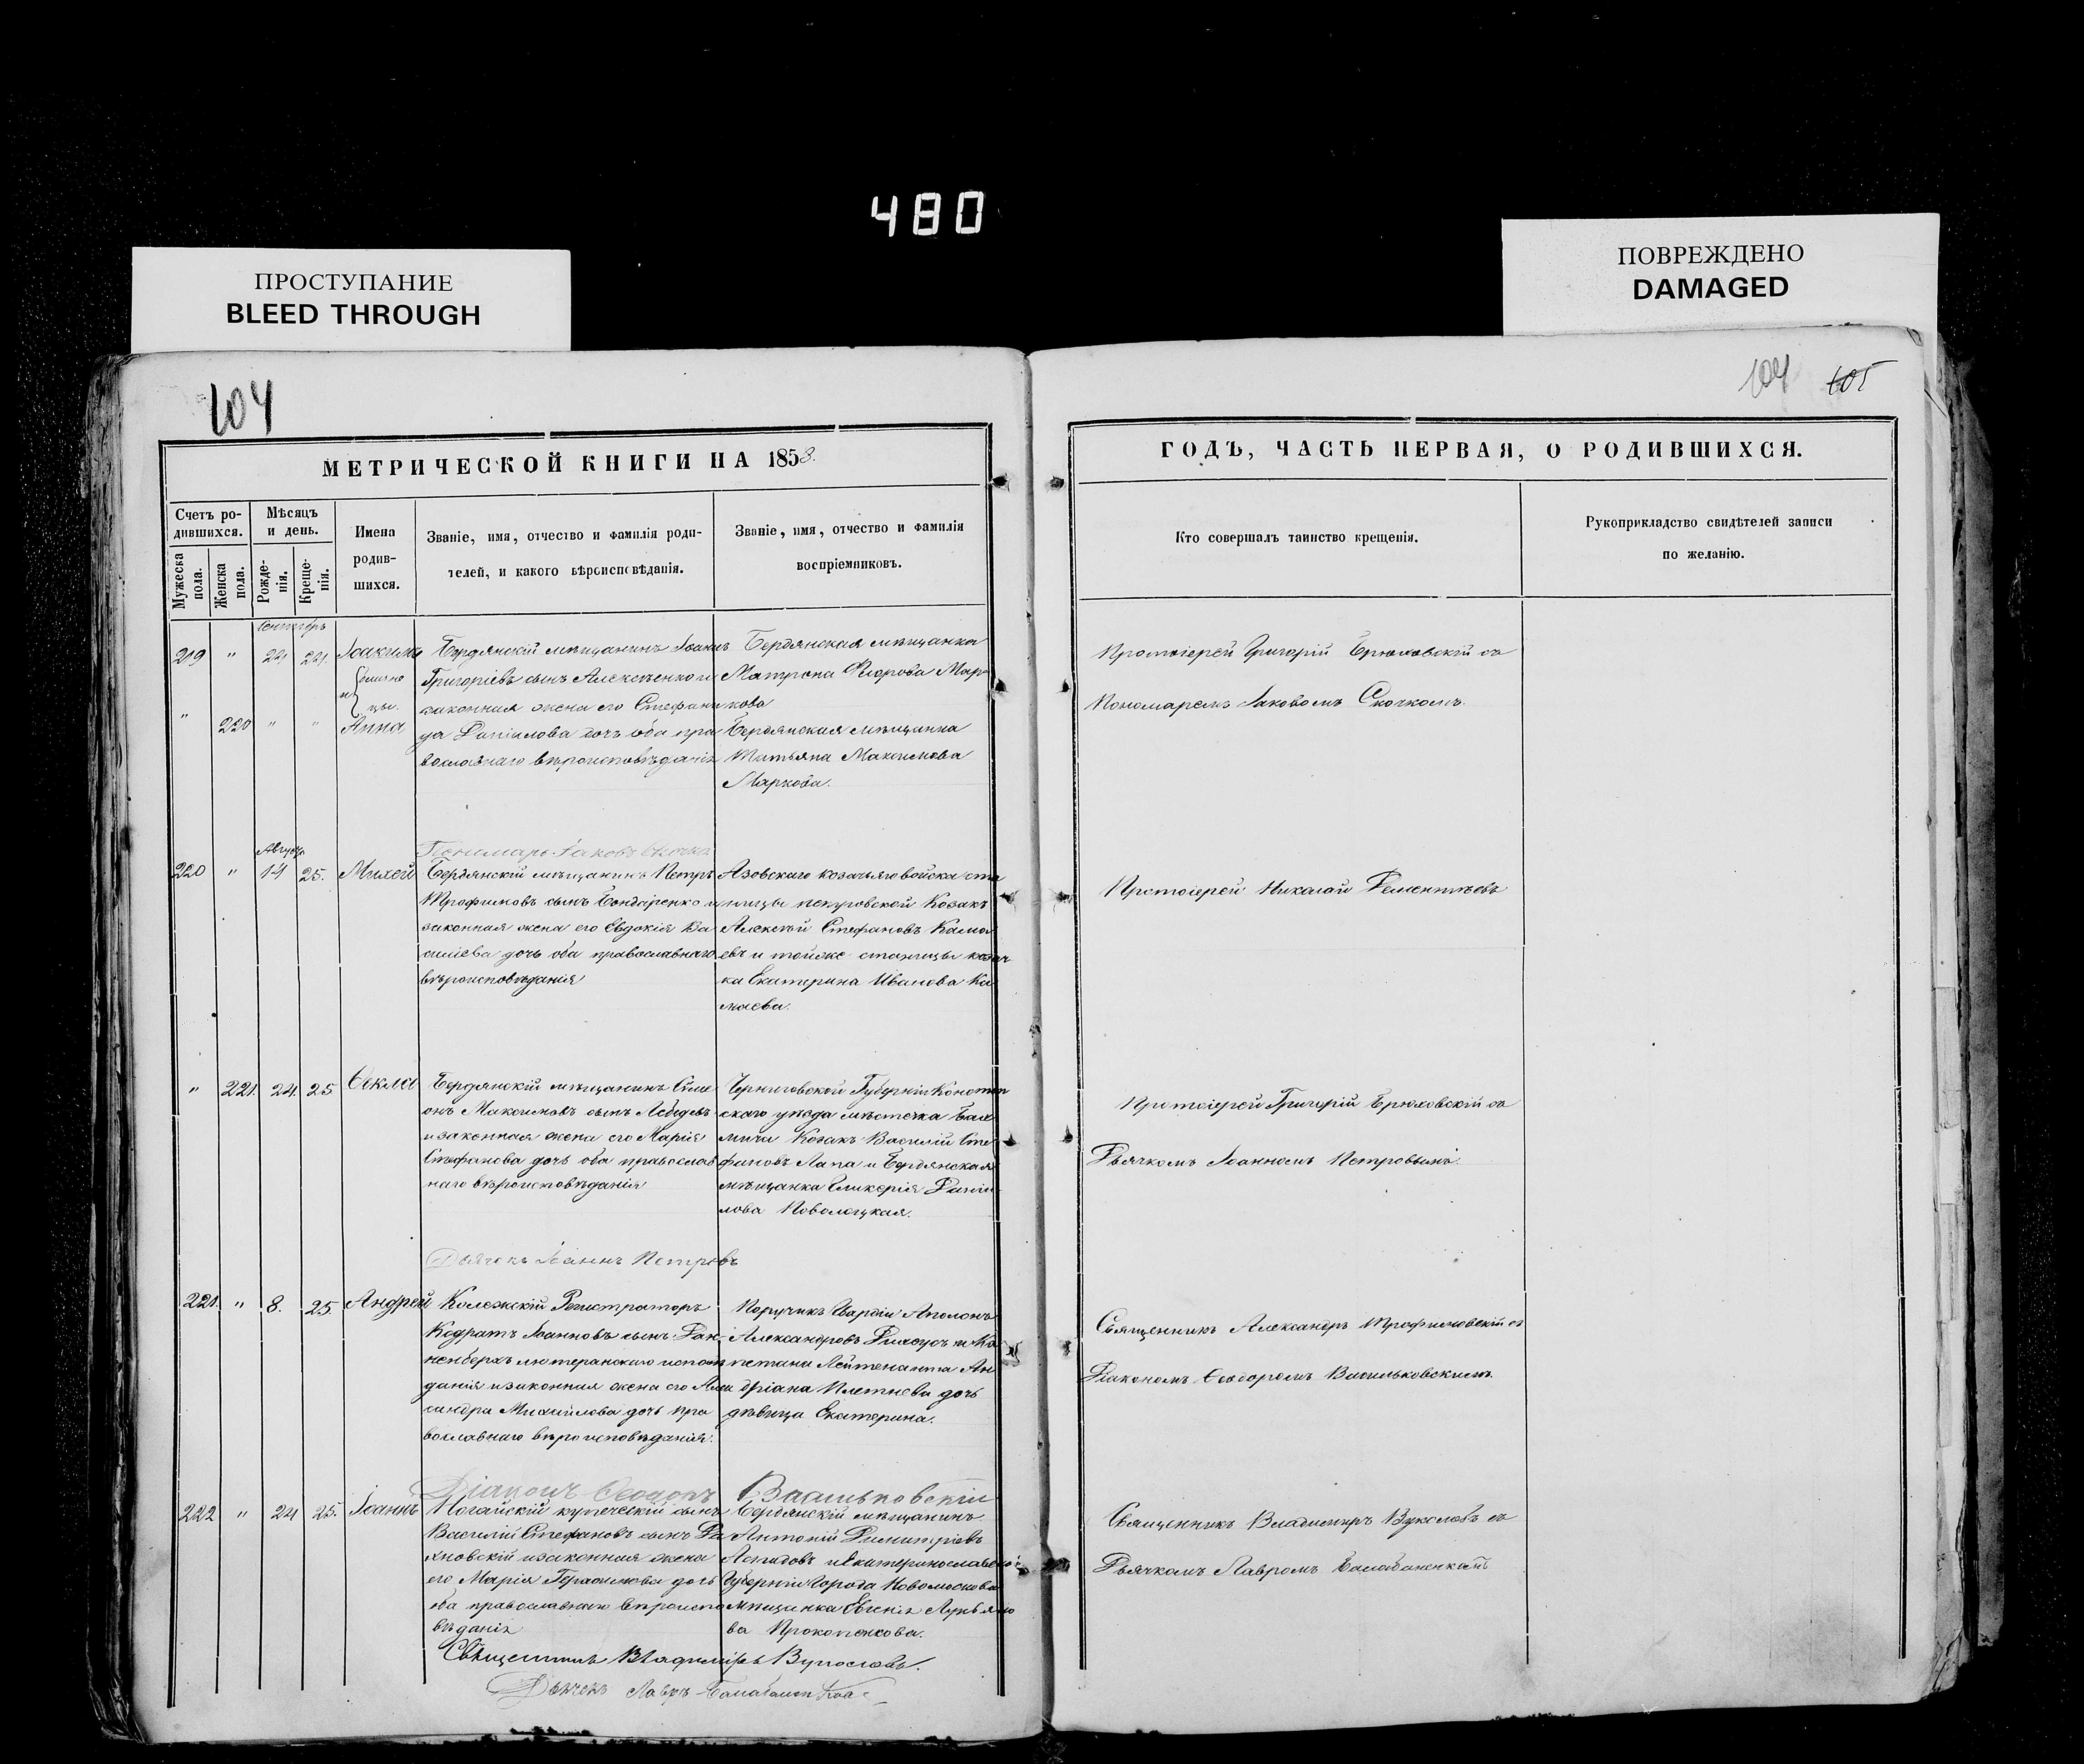 480
ПРОСТУПАНИЕ
BLEED THROUGH
ПОВРЕЖДЕНО
DAMAGED
104
104 105
МЕТРИЧЕСКОЙ КНИГИ НА 1858.
ГОДЪ, ЧАСТЬ ПЕРВАЯ, О РОДИВШИХСЯ.
Счетъ ро-
дившихся.
Мужеска
пола.
Женска
пола.
Мѣсяцъ
и день.
Рожде-
нія.
Креще-
нія.
Имена
родив-
шихся.
Званіе, имя, отчество и фамилія роди-
телей, и какого вѣроисповѣданія.
Званіе, имя, отчество и фамилія
воспріемниковъ.
Кто совершалъ таинство крещенія.
Рукоприкладство свидѣтелей записи
по желанію.
219 "
" 220 " "
и
Анна
Бердянскій мѣщанинъ Іоаннъ
Григоріевъ сынъ и
законная жена его Стефани
да Даніилова дочь оба пра
вославнаго вѣроисповѣданія
Бердянская мѣщанка
Матрона Мар
кова
Бердянская мѣщанка
Татьяна Максимова
Маркова.
Протоіерей Григорій Брюховскій съ
Пономаремъ Іаковомъ
Пономарь Іаковъ
220 " 14 25. Михей
Бердянскій мѣщанинъ Петръ
Трофимовъ сынъ Бондаренко и
законная жена его Евдокія Ва
силіева дочь оба православнаго
вѣроисповѣданія
Азовскаго козачьяго войска ста
ницы Козакъ
Алексѣй Стефановъ Кама
евъ и тойже станицы козач
ка Екатерина Иванова Ка
маева.
Протоіерей Николай Дементьевъ
" 221. 24. 25 Ѳекла
Бердянскій мѣщанинъ Симе
онъ Максимовъ сынъ Лебедевъ
и законная жена его Марія
Стефанова дочь оба православ
наго вѣроисповѣданія
Черниговской Губерніи Конотоп
скаго уѣзда мѣстечка
Козакъ Василій Сте
фановъ Лапа и Бердянская
мѣщанка Гликерія Даніи
лова Поволоцкая.
Протоіерей Григорій Брюховскій съ
Дьячкомъ Іоанномъ Петровымъ.
Дьячокъ Іоаннъ Петровъ
221. " 8. 25. Андрей
Колежскій Регистраторъ
Кодратъ Іоанновъ сынъ Дан
ненбергъ лютеранскаго исповѣ
данія и законная жена его Алек
сандра Михайлова дочь пра
вославнаго вѣроисповѣданія.
Поручикъ Гвардіи Аполонъ
Александровъ и Ка
петана Лейтенанта Ан
дріана Плетнева дочь
дѣвица Екатерина.
Священникъ Александръ Трофимовскій съ
Діакономъ Ѳеодоромъ Васильковскимъ.
Діаконъ Ѳеодоръ Васильковскій
222 " 24 25. Іоаннъ
Ногайскій купеческій сынъ
Василій Стефановъ сынъ
и законная жена
его Марія Герасимова дочь
оба православнаго вѣроиспо
вѣданія
Бердянскій мѣщанинъ
Антоній Димитріевъ
и Екатеринославской
Губерніи города Новомосковс
мѣщанка Евгенія Лукьяно
ва Прокопенкова.
Священникъ Владимиръ Вуколовъ съ
Дьячкомъ Лавромъ
Священникъ Владиміръ Вуколовъ.
Дьячекъ Лавръ